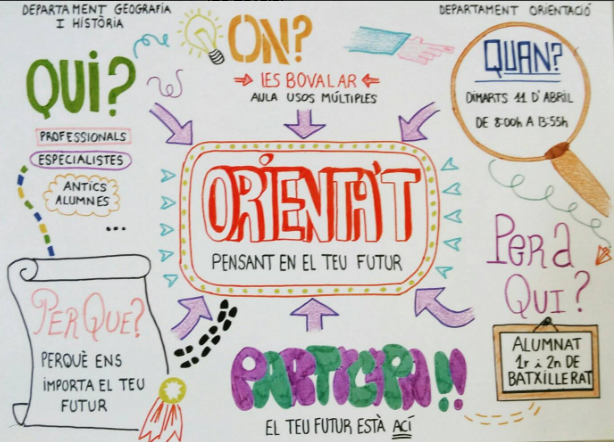 DEPARTAMENT GEOGRAFÍA
I HISTÒRIA
ON?
DEPARTAMENT ORIENTACIÓ
IES BOVALAR
AULA USOS MÚLTIPLES
QUI?
PROFESSIONALS
ESPECIALISTES
ANTICS
ALUMNES
...
QUAN?
DIMARTS 11 D'ABRIL
DE 8:00h A 13:55h
ORIENTA'T
PENSANT EN EL TEU FUTUR
PER A
QUI?
ALUMNAT
1r i 2n DE
BATXILLERAT
PERQUE?
PERQUÈ ENS
IMPORTA EL TEU
FUTUR
PARTICIPA!!
EL TEU FUTUR ESTÀ ACÍ